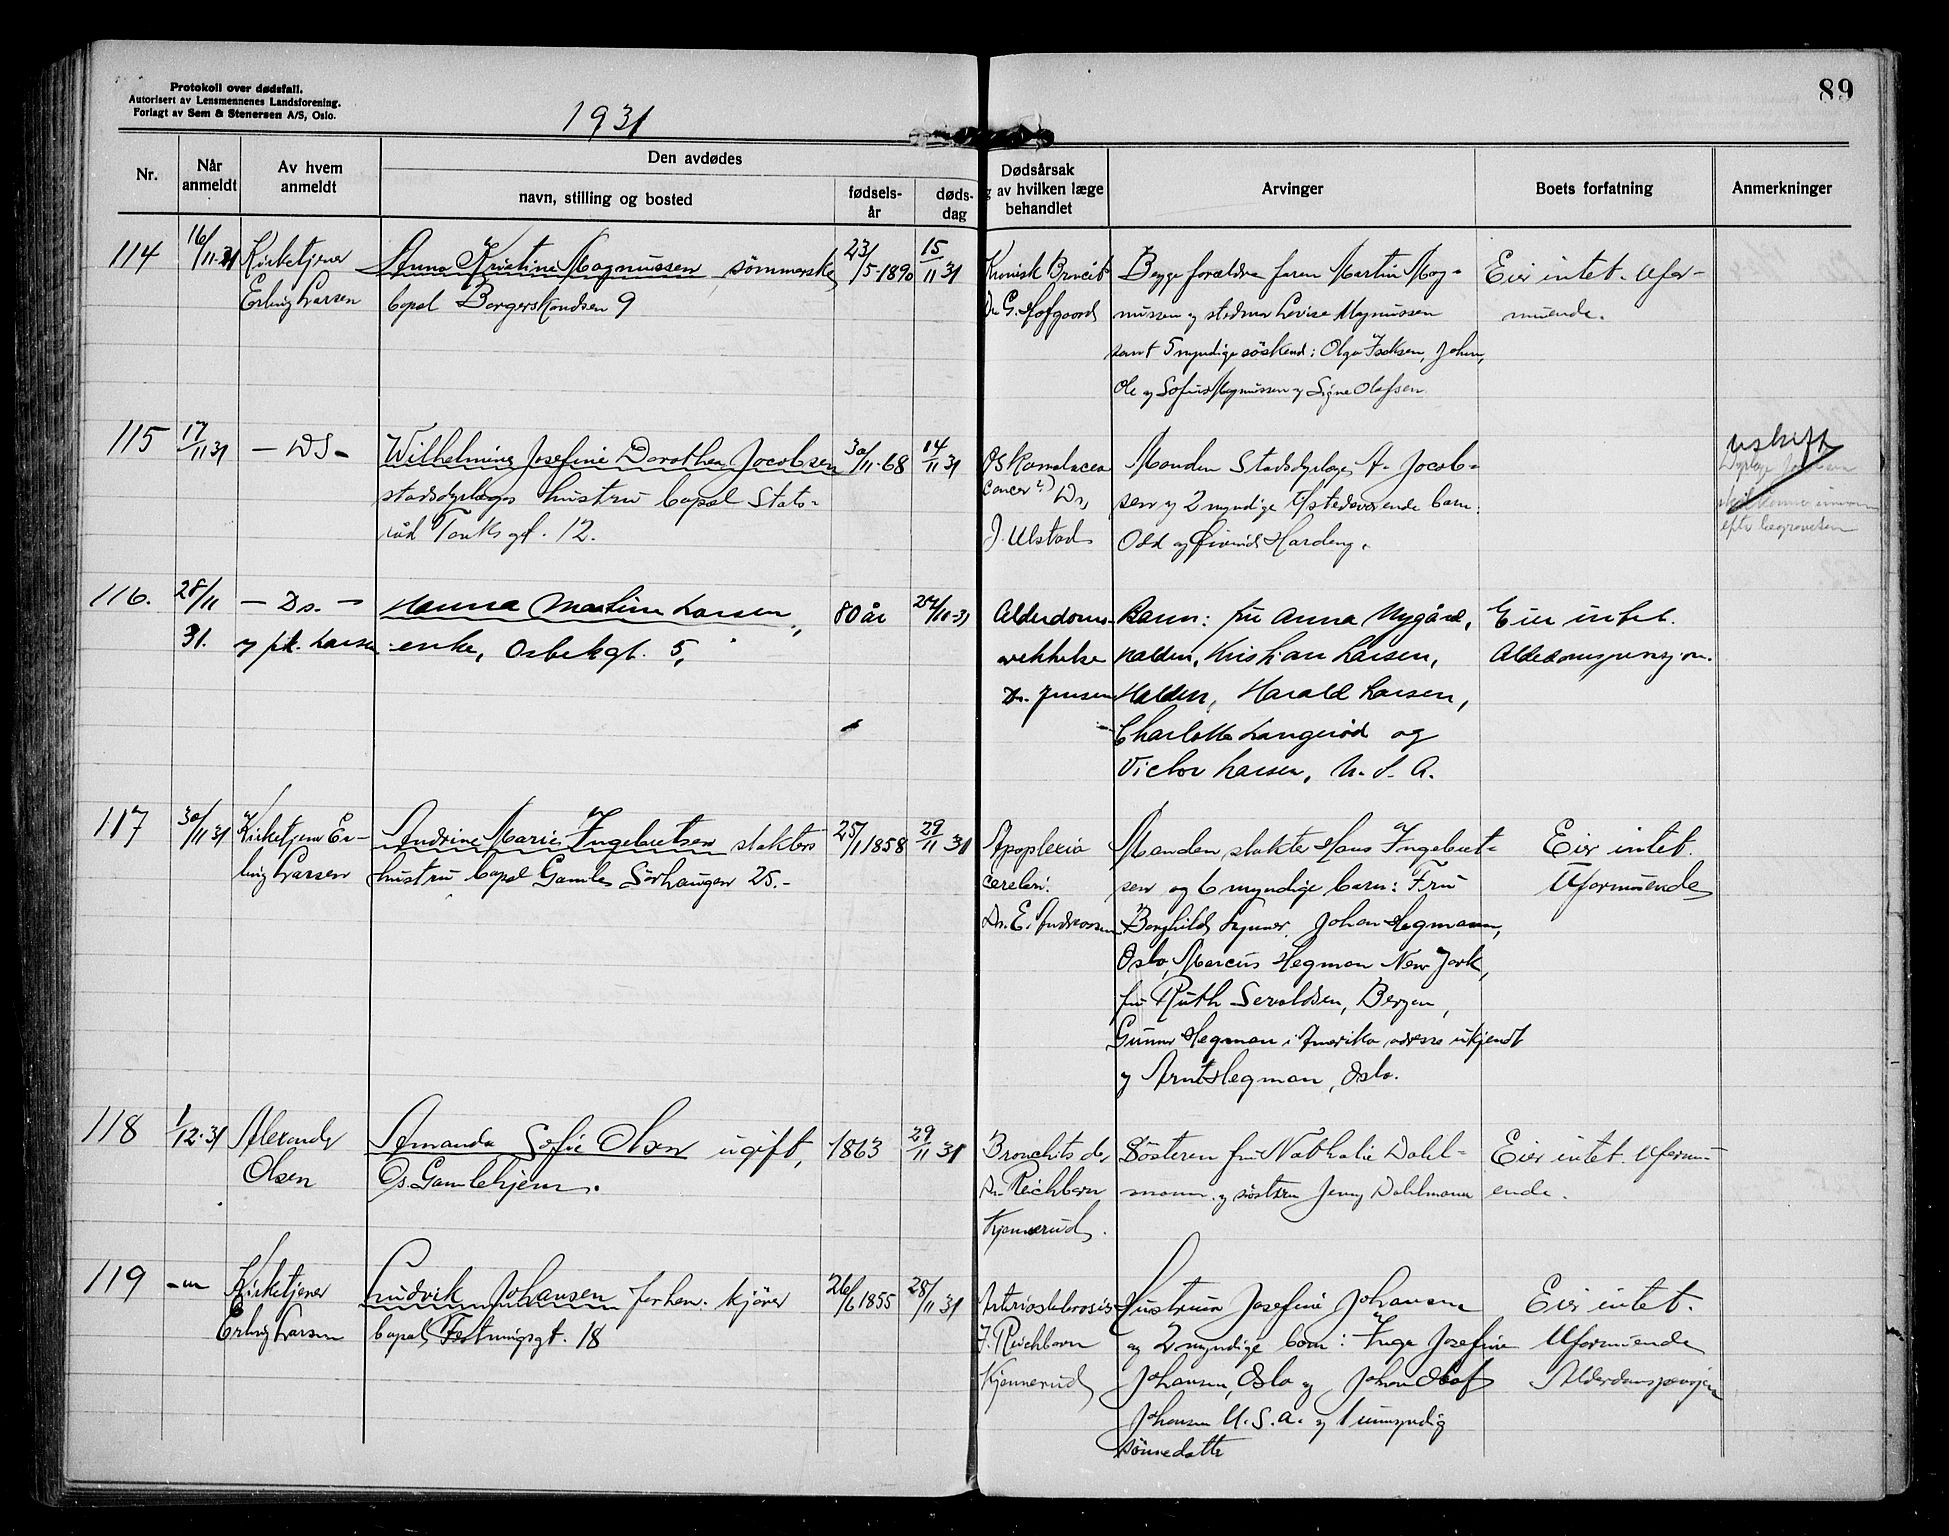 Protokoll over dødsfall.
Autorisert av Lensmennenes Landsforening.
Forlagt av Sem & Stenersen A/S, Oslo.
1931
89
Nr.
Når anmeldt
Av hvem anmeldt
Den avdødes
navn, stilling og bosted
fødsels-år
døds-dag
Dødsårsak
g av hvilken læge
behandlet
Arvinger
Boets forfatning
Anmerkninger
114
16/11-31
Kirketjener
Erling Larsen
Anna Kristine Magnussen sömmerske
bopæl Borgerskandsen 9
23/5-1890
15/11 31
Kronisk
Dr G. Hofgaard
Begge forældre faren Martin Mag-
nussen og stedmor Lovise Magnussen
samt 5 myndige söskend: Olga Isaksen, Johan,
Ole og Sofus Magnussen og Signe Olafsen
Eier intet. Ufor-
muende.
115
17/11 31
- Ds -
Wilhelmine Josefine Dorothea Jacobsen
stadsdyrlæges hustru bopæl Stats-
råd Tanks gt. 12.
30/11-68
14/11 31
cancer ?) Dr,
J. Ulstad
Manden Stadsdyrlæge A. Jacob-
sen og 2 myndige tilstedeværende barn:
Odd og Øivind Hardeng.
Uskift
efter begravelsen
116.
28/11
31.
- Ds. -
og frk. Larsen
Hanna Martine Larsen,
enke, Osbekgt. 5,
80 år
Alderdoms-
svekkelse
Dr. Jensen
Barn: fru Anna Nygård,
Halden, Kristian Larsen,
Halden, Harald Larsen,
Charlotte Langerød og
Victor Larsen, U.S.A.
Eier intet.
Alderdomspensjon.
117
30/11 31
Kirketjener Er-
ling Larsen
Andrine Marie Ingebretsen slakters
hustru bopæl Gamle Sörhaugen 25.-
25/1 1858
29/11 31
Apoplexia
cerebri.
Dr. E. Andreassen
Manden slakter Hans Ingebret-
sen og 6 myndige barn: Fru
Borghild Johan Hegmann,
Oslo, Marcus Hegman New York,
fru Ruth Sevaldsen, Bergen,
Gunnar Hegman i Amerika adresse ukjendt
og Arnt Hegman, Oslo.
Eier intet.
Uformuende
118
1/12-31
Alexander
Olsen
Amanda Sofie Olsen ugift,
Os. Gamlehjem.
1863
29/11 31
Dr. Reichborn
Kjennerud.
Søsteren fru Nathalie Dahl-
mann. og søstren Jenny Dahlmann
Eier intet. Uformu-
ende.
119
- " -
Kirketjener
Erling Larsen
Ludvik Johansen forhen. kjører
bopæl, Festningsgt. 18
26/6 1855
28/11 31
Arteriosklerosis
J. Reichborn
Kjennerud
Hustruen Josefine Johansen
og 2 myndige barn: Inga Josefine
Johansen, Oslo og Johan Olaf
Johansen U.S.A. og 1 umyndig
sønnedatter
Eier intet.
Uformuende
Alderdomspensjon